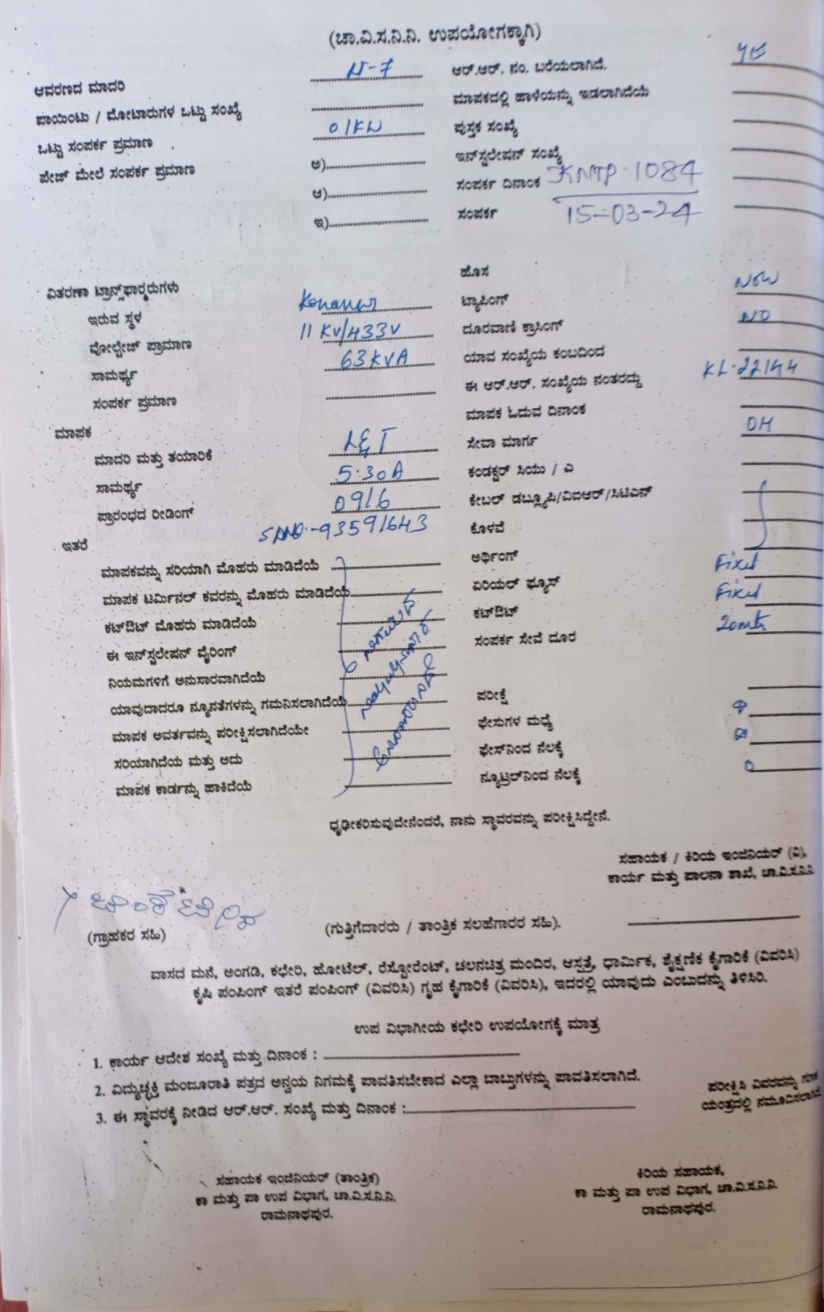 (ಚಾ.ವಿ.ಸ.ನಿ.ನಿ. ಉಪಯೋಗಕ್ಕಾಗಿ)
ಆವರಣದ ಮಾದರಿ
ಆರ್.ಆರ್. ನಂ. ಬರೆಯಲಾಗಿದೆ.
ಪಾಯಿಂಟು / ಮೋಟಾರುಗಳ ಒಟ್ಟು ಸಂಖ್ಯೆ
ಮಾಪಕದಲ್ಲಿ ಹಾಳೆಯನ್ನು ಇಡಲಾಗಿದೆಯೆ
ಒಟ್ಟು ಸಂಪರ್ಕ ಪ್ರಮಾಣ 01KW
ಪುಸ್ತಕ ಸಂಖ್ಯೆ
ಪೇಜ್ ಮೇಲೆ ಸಂಪರ್ಕ ಪ್ರಮಾಣ ಅ)
ಇನ್‌ಸ್ಟಲೇಷನ್ ಸಂಖ್ಯೆ
ಆ)
ಸಂಪರ್ಕ ದಿನಾಂಕ KNTP·1084
ಇ)
ಸಂಪರ್ಕ 15-03-24
ವಿತರಣಾ ಟ್ರಾನ್ಸ್‌ಫಾರ್ಮರುಗಳು
ಹೊಸ
ಇರುವ ಸ್ಥಳ
ಟ್ಯಾಪಿಂಗ್ NEW
ವೋಲ್ಟೇಜ್ ಪ್ರಾಮಾಣ 11 KV/433V
ದೂರವಾಣಿ ಕ್ರಾಸಿಂಗ್ NO
ಸಾಮರ್ಥ್ಯ 63KVA
ಯಾವ ಸಂಖ್ಯೆಯ ಕಂಬದಿಂದ
ಸಂಪರ್ಕ ಪ್ರಮಾಣ
ಈ ಆರ್.ಆರ್. ಸಂಖ್ಯೆಯ ನಂತರದ್ದು KL·22144
ಮಾಪಕ
ಮಾಪಕ ಓದುವ ದಿನಾಂಕ
ಮಾದರಿ ಮತ್ತು ತಯಾರಿಕೆ L&T
ಸೇವಾ ಮಾರ್ಗ OH
ಸಾಮರ್ಥ್ಯ 5·30A
ಕಂಡಕ್ಟರ್ ಸಿಯು / ಎ
ಪ್ರಾರಂಭದ ರೀಡಿಂಗ್ 09/6
ಕೇಬಲ್ ಡಬ್ಲ್ಯೂಪಿ/ವಿಐಆರ್/ಸಿಟಿಎನ್
ಇತರೆ
ಕೊಳವೆ
ಮಾಪಕವನ್ನು ಸರಿಯಾಗಿ ಮೊಹರು ಮಾಡಿದೆಯೆ
ಅರ್ಥಿಂಗ್ Fixed
ಮಾಪಕ ಟರ್ಮಿನಲ್ ಕವರನ್ನು ಮೊಹರು ಮಾಡಿದೆಯೆ
ಏರಿಯಲ್ ಫ್ಯೂಸ್ Fixed
ಕಟ್‌ಔಟ್ ಮೊಹರು ಮಾಡಿದೆಯೆ
ಕಟ್‌ಔಟ್
ಈ ಇನ್‌ಸ್ಟಲೇಷನ್ ವೈರಿಂಗ್
ಸಂಪರ್ಕ ಸೇವೆ ದೂರ
ನಿಯಮಗಳಿಗೆ ಅನುಸಾರವಾಗಿದೆಯೆ
ಯಾವುದಾದರೂ ನ್ಯೂನತೆಗಳನ್ನು ಗಮನಿಸಲಾಗಿದೆಯೆ
ಪರೀಕ್ಷೆ
ಮಾಪಕ ಅವರ್ತವನ್ನು ಪರೀಕ್ಷಿಸಲಾಗಿದೆಯೇ
ಫೇಸುಗಳ ಮಧ್ಯೆ
ಸರಿಯಾಗಿದೆಯೆ ಮತ್ತು ಅದು
ಫೇಸ್‌ನಿಂದ ನೆಲಕ್ಕೆ
ಮಾಪಕ ಕಾರ್ಡನ್ನು ಹಾಕಿದೆಯೆ
ನ್ಯೂಟ್ರಲ್‌ನಿಂದ ನೆಲಕ್ಕೆ
ಧೃಢೀಕರಿಸುವುದೇನೆಂದರೆ, ನಾನು ಸ್ಥಾವರವನ್ನು ಪರೀಕ್ಷಿಸಿದ್ದೇನೆ.
ಸಹಾಯಕ / ಕಿರಿಯ ಇಂಜಿನಿಯರ್ (ವಿ),
ಕಾರ್ಯ ಮತ್ತು ಪಾಲನಾ ಶಾಖೆ, ಚಾ.ವಿ.ಸ.ನಿ.ನಿ
(ಗ್ರಾಹಕರ ಸಹಿ)
(ಗುತ್ತಿಗೆದಾರರು / ತಾಂತ್ರಿಕ ಸಲಹೆಗಾರರ ಸಹಿ).
ವಾಸದ ಮನೆ, ಅಂಗಡಿ, ಕಛೇರಿ, ಹೋಟೆಲ್, ರೆಸ್ಟೋರೆಂಟ್, ಚಲನಚಿತ್ರ ಮಂದಿರ, ಆಸ್ಪತ್ರೆ, ಧಾರ್ಮಿಕ, ಶೈಕ್ಷಣಿಕ ಕೈಗಾರಿಕೆ (ವಿವರಿಸಿ)
ಕೃಷಿ ಪಂಪಿಂಗ್ ಇತರೆ ಪಂಪಿಂಗ್ (ವಿವರಿಸಿ) ಗೃಹ ಕೈಗಾರಿಕೆ (ವಿವರಿಸಿ), ಇದರಲ್ಲಿ ಯಾವುದು ಎಂಬುದನ್ನು ತಿಳಿಸಿರಿ.
ಉಪ ವಿಭಾಗೀಯ ಕಛೇರಿ ಉಪಯೋಗಕ್ಕೆ ಮಾತ್ರ
1. ಕಾರ್ಯ ಆದೇಶ ಸಂಖ್ಯೆ ಮತ್ತು ದಿನಾಂಕ :
2. ವಿದ್ಯುಚ್ಛಕ್ತಿ ಮಂಜೂರಾತಿ ಪತ್ರದ ಅನ್ವಯ ನಿಗಮಕ್ಕೆ ಪಾವತಿಸಬೇಕಾದ ಎಲ್ಲಾ ಬಾಬ್ತುಗಳನ್ನು ಪಾವತಿಸಲಾಗಿದೆ.
ಪರೀಕ್ಷಿಸಿ ವಿವರವನ್ನು
3. ಈ ಸ್ಥಾವರಕ್ಕೆ ನೀಡಿದ ಆರ್.ಆರ್. ಸಂಖ್ಯೆ ಮತ್ತು ದಿನಾಂಕ :
ಯಂತ್ರದಲ್ಲಿ ನಮೂದಿಸಲಾಗಿದೆ
ಸಹಾಯಕ ಇಂಜಿನಿಯರ್ (ತಾಂತ್ರಿಕ)
ಕಾ ಮತ್ತು ಪಾ ಉಪ ವಿಭಾಗ, ಚಾ.ವಿ.ಸ.ನಿ.ನಿ.
ರಾಮನಾಥಪುರ.
ಕಿರಿಯ ಸಹಾಯಕ,
ಕಾ ಮತ್ತು ಪಾ ಉಪ ವಿಭಾಗ, ಚಾ.ವಿ.ಸ.ನಿ.ನಿ.
ರಾಮನಾಥಪುರ.